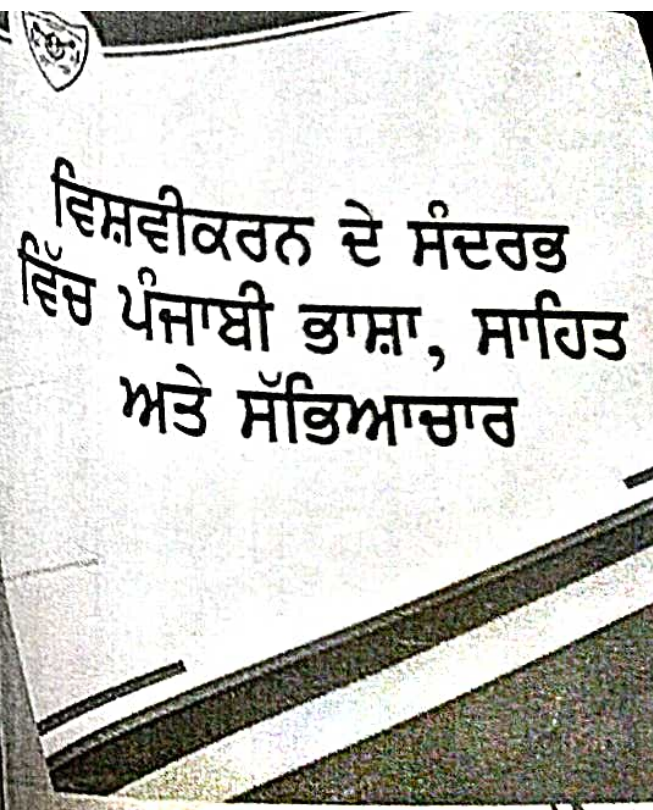 ਵਿਸ਼ਵੀਕਰਨ ਦੇ ਸੰਦਰਭ
ਵਿੱਚ ਪੰਜਾਬੀ ਭਾਸ਼ਾ, ਸਾਹਿਤ
ਅਤੇ ਸੱਭਿਆਚਾਰ